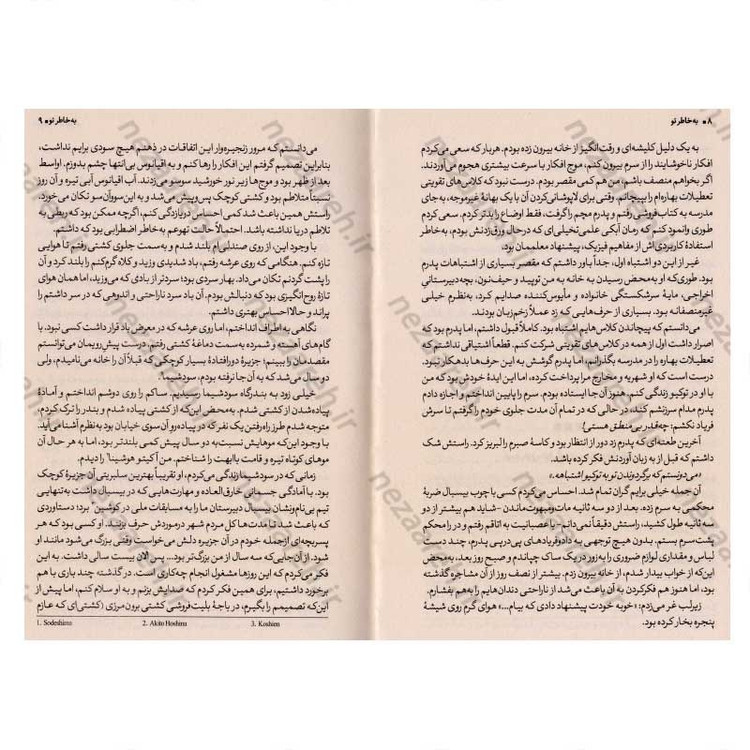 ۸ ■ به‌خاطر تو
به یک دلیل کلیشه‌ای و رقت‌انگیز از خانه بیرون زده بودم. هربار که سعی می‌کردم
افکار ناخوشایند را از سرم بیرون کنم، موج افکار با سرعت بیشتری هجوم می‌آوردند.
اگر بخواهم منصف باشم، من هم کمی مقصر بودم. درست نبود که کلاس‌های تقویتی
تعطیلات بهاره‌ام را بپیچانم. وقتی برای لاپوشانی کردن آن با یک بهانهٔ غیرموجه، به‌جای
مدرسه به کتاب‌فروشی رفتم و پدرم مچم را گرفت، فقط اوضاع را بدتر کردم. سعی کردم
طوری وانمود کنم که رمان آبکی علمی‌تخیلی‌ای که درحال ورق‌زدنش بودم، به‌خاطر
استفادهٔ کاربردی‌اش از مفاهیم فیزیک، پیشنهاد معلممان بود.
غیر از این دو اشتباه اول، جداً باور داشتم که مقصر بسیاری از اشتباهات پدرم
بود. طوری‌که او به‌محض رسیدن به خانه به من توپید و حیف‌نون، بچه‌دبیرستانی
اخراجی، مایهٔ سرشکستگی خانواده و مأیوس‌کننده صدایم کرد، به‌نظرم خیلی
غیرمنصفانه بود. بسیاری از حرف‌هایی که زد عملاً زخم‌زبان بودند.
می‌دانستم که پیچاندن کلاس‌هایم اشتباه بود. کاملاً قبول داشتم، اما پدرم بود که
اصرار داشت اول از همه در کلاس‌های تقویتی شرکت کنم. قطعاً اشتیاقی نداشتم که
تعطیلات بهاره را در مدرسه بگذرانم، اما پدرم گوشش به این حرف‌ها بدهکار نبود.
درست است که او شهریه و مخارج مرا پرداخت کرده، اما این ایدهٔ خودش بود که من
با او در توکیو زندگی کنم. هنوز آن‌جا ایستاده بودم. سرم را پایین انداختم و اجازه دادم
پدرم مدام سرزنشم کند، در حالی که در تمام آن مدت جلوی خودم را گرفتم تا سرش
فریاد نکشم: چه‌قدر بی‌منطق هستی!
آخرین طعنه‌ای که پدرم زد دور از انتظار بود و کاسهٔ صبرم را لبریز کرد. راستش شک
داشتم که قبل از به زبان آوردنش فکر کرده باشد.
«می‌دونستم که برگردوندن تو به توکیو اشتباهه.»
آن جمله خیلی برایم گران تمام شد. احساس می‌کردم کسی با چوب بیسبال ضربهٔ
محکمی به سرم زده. بعد از دو سه ثانیه مات‌ومبهوت‌ماندن –شاید هم بیشتر از دو
سه ثانیه طول کشید، راستش دقیقاً نمی‌دانم– با عصبانیت به اتاقم رفتم و در را محکم
پشت‌سرم بستم. بدون هیچ توجهی به دادوفریادهای پی‌درپی پدرم، چند دست
لباس و مقداری لوازم ضروری را به‌زور در یک ساک چپاندم و صبح روز بعد، به‌محض
این‌که از خواب بیدار شدم، از خانه بیرون زدم. بیشتر از نصف روز از آن مشاجره گذشته
بود، اما هنوز هم فکرکردن به آن باعث می‌شد از ناراحتی دندان‌هایم را به‌هم بفشارم.
زیرلب غر می‌زدم: «خوبه خودت پیشنهاد دادی که بیام...» هوای گرم روی شیشهٔ
پنجره بخار کرده بود.
به‌خاطر تو ■ ۹
می‌دانستم که مرور زنجیره‌وار این اتفاقات در ذهنم هیچ سودی برایم نداشت،
بنابراین تصمیم گرفتم این افکار را رها کنم و به اقیانوس بی‌انتها چشم بدوزم. اواسط
بعد از ظهر بود و موج‌ها زیر نور خورشید سوسو می‌زدند. آب اقیانوس آبی تیره و آن روز
نسبتاً متلاطم بود و کشتی کوچک پس‌وپیش می‌شد و به این‌سووآن‌سو تکان می‌خورد.
راستش همین باعث شد کمی احساس دریازدگی کنم، اگرچه ممکن بود که ربطی به
تلاطم دریا نداشته باشد. احتمالاً حالت تهوعم به خاطر اضطرابی بود که داشتم.
با وجود این، از روی صندلی‌ام بلند شدم و به‌سمت جلوی کشتی رفتم تا هوایی
تازه کنم. هنگامی که روی عرشه رفتم، باد شدیدی وزید و کلاه گرم‌کنم را بلند کرد و آن
را پشت گردنم تکان می‌داد. بهار سردی بود؛ سردتر از بادی که می‌وزید، اما همان هوای
تازهٔ روح‌انگیزی بود که دنبالش بودم. آن باد سرد ناراحتی و اندوهی که در سر داشتم را
پراند و حالا احساس بهتری داشتم.
نگاهی به اطراف انداختم، اما روی عرشه که در معرض باد قرار داشت کسی نبود. با
گام‌های آهسته و شمرده به سمت دماغهٔ کشتی رفتم. درست پیش‌رویمان می‌توانستم
مقصدمان را ببینم؛ جزیرهٔ دورافتادهٔ بسیار کوچکی که قبلاً آن را خانه می‌نامیدم، ولی
دو سال می‌شد که به آن جا نرفته بودم. سودشیما.¹
خیلی زود به بندرگاه سودشیما رسیدیم. ساکم را روی دوشم انداختم و آمادهٔ
پیاده‌شدن از کشتی شدم. به‌محض این‌که از کشتی پیاده شدم و بندر را ترک کردم،
متوجه شدم طرز راه‌رفتن یک نفر که در پیاده‌رو آن سوی خیابان بود به‌نظرم آشنا می‌آید.
با وجود این‌که موهایش نسبت‌به دو سال پیش کمی بلندتر بود، اما به هر حال آن
موهای کوتاه تیره و قامت باابهت را شناختم. من آکیتو هوشینا² را دیدم.
زمانی که در سودشیما زندگی می‌کردم، او تقریباً بهترین سلبریتی آن جزیرهٔ کوچک
بود. با آمادگی جسمانی خارق‌العاده و مهارت‌هایی که در بیسبال داشت به‌تنهایی
تیم بی‌نام‌ونشان بیسبال دبیرستان ما را به مسابقات ملی در کوشین³ برد؛ دستاوردی
که باعث شد تا مدت‌ها کل مردم شهر درموردش حرف بزنند. او کسی بود که هر
پسربچه‌ای ازجمله خودم در آن جزیره دلش می‌خواست وقتی بزرگ می‌شود مانند او
شود. از آن‌جایی‌که سه سال از من بزرگ‌تر بود... پس الان بیست سالی داشت. به این
فکر می‌کردم که این روزها مشغول انجام چه‌کاری است. در گذشته چند باری با هم
برخورد داشتیم، برای همین فکر کردم که صدایش بزنم و به او سلام کنم، اما پیش از
این‌که تصمیمم را بگیرم، در باجهٔ بلیت‌فروشی کشتی برون‌مرزی (کشتی‌ای که عازم
1. Sodeshima 2. Akito Hoshina 3. Koshien
nezaareh.ir